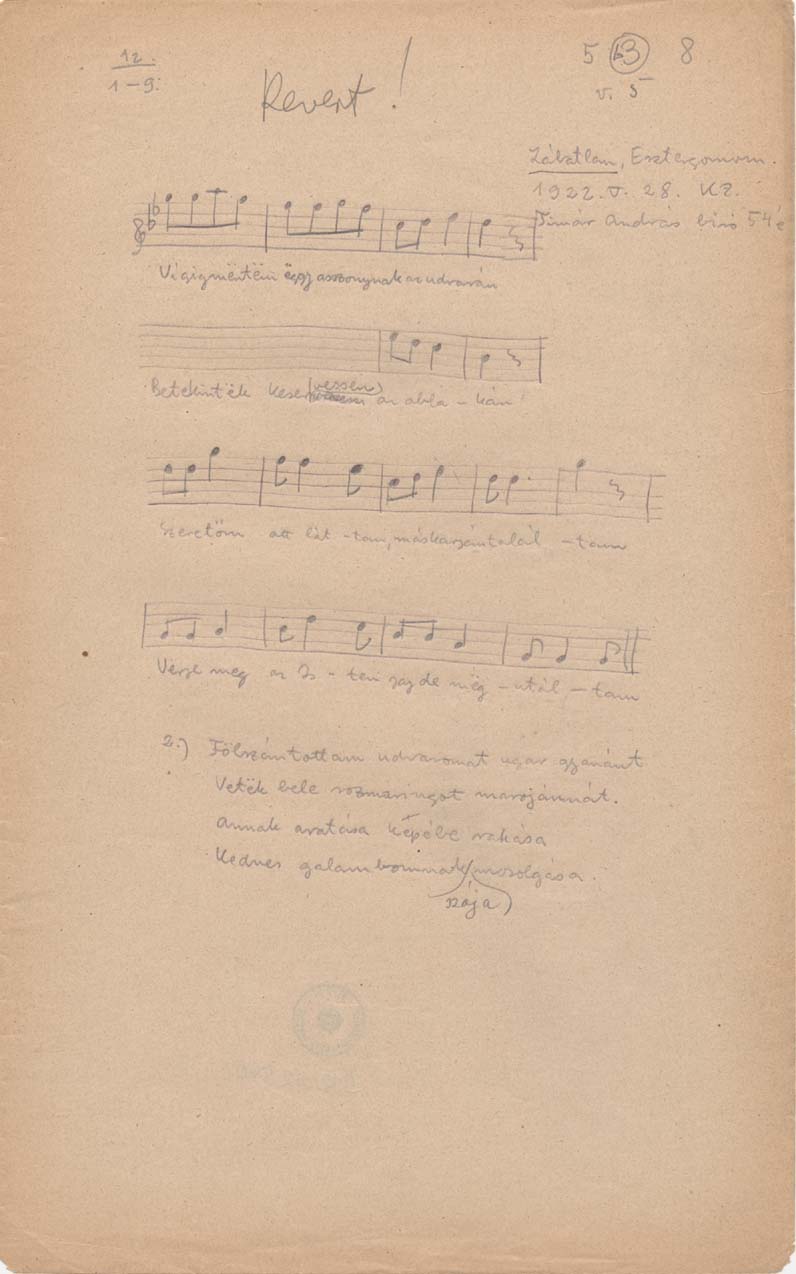 12.
1-9.
Revert!
5 b3 8
v. 5
Lábatlan, Esztergomvm.
1922. V. 28. KZ.
Timár András biró 54 é
Végigmëntëm ëggy asszonynak az udvarán
(vessen)
Betekinték az abla - kán
Szeretöm ott lát - tam, máskarján talál - tam
Verje meg az Is - ten mëg - utál - tam
2.) Fölszántottam udvaromat ugar gyanánt
Veték bele rozmaringot marojánnát.
Annak aratása képébe rakása
Kedves galambomnak mosolgása.
szája)